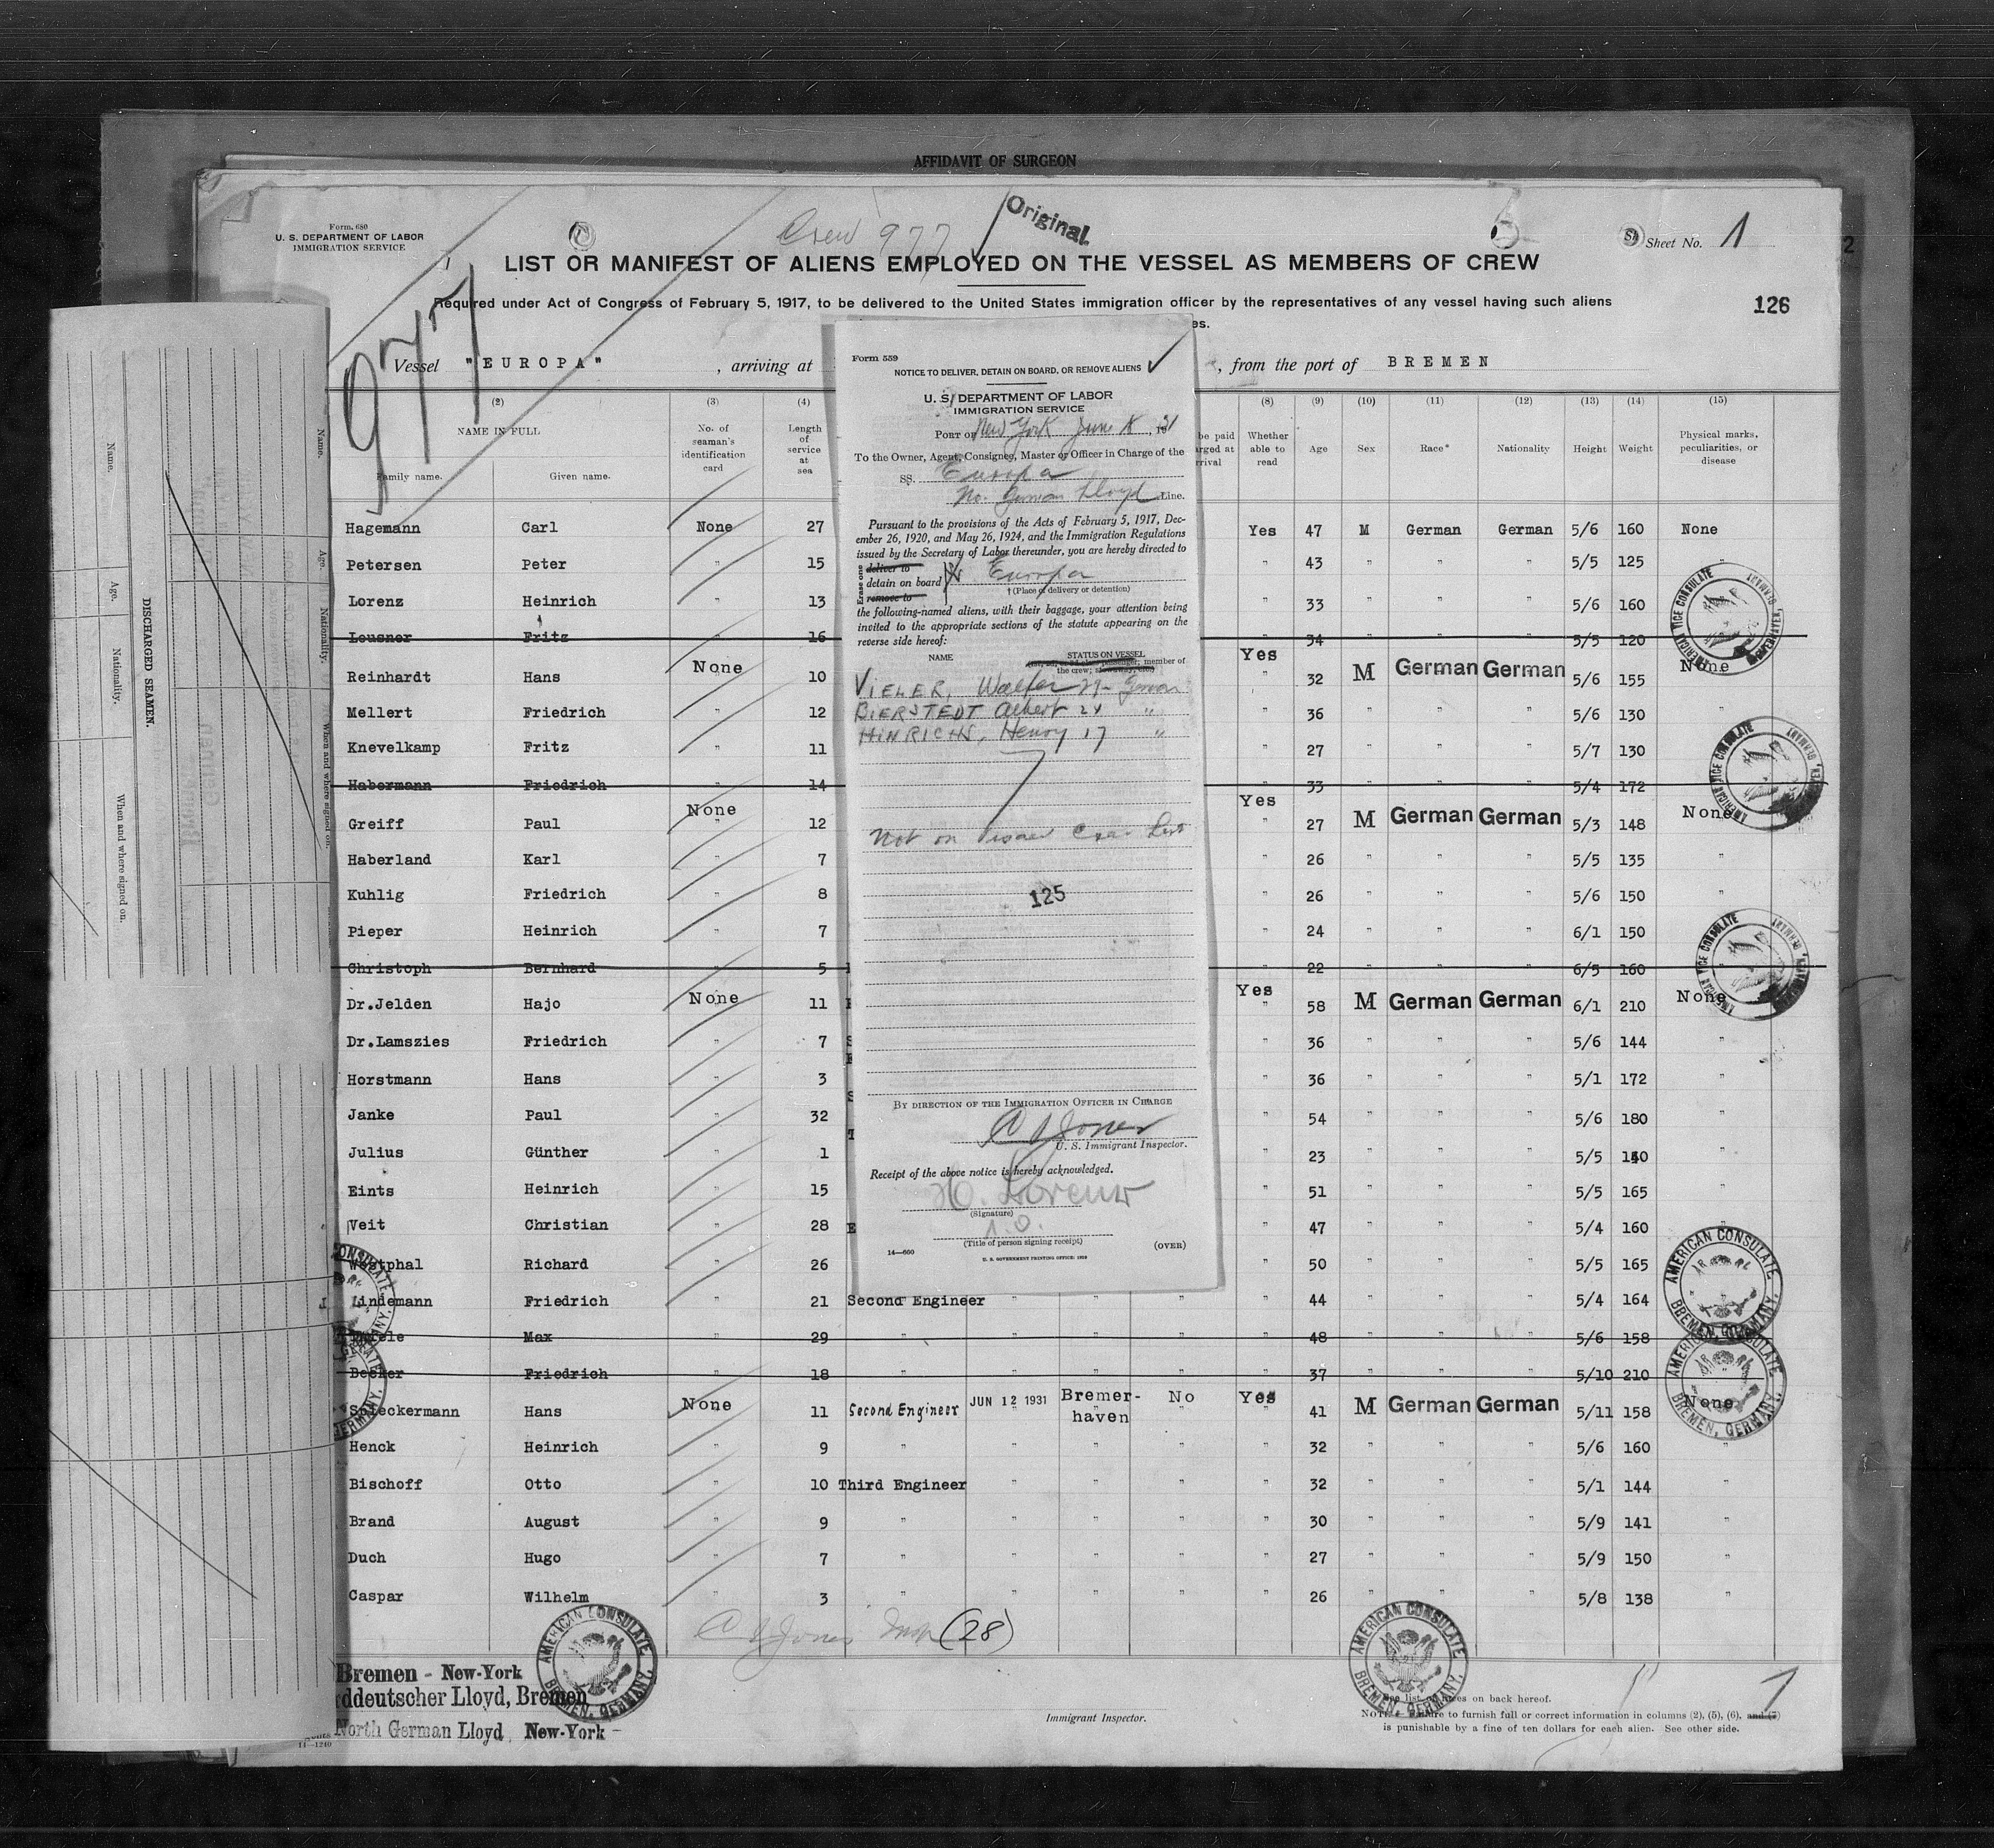 AFFIDAVIT OF SURGEON
Form. 680
U. S. DEPARTMENT OF LABOR
IMMIGRATION SERVICE
Crew 977
Original
Sheet No. 1
2
LIST OR MANIFEST OF ALIENS EMPLOYED ON THE VESSEL AS MEMBERS OF CREW
Required under Act of Congress of February 5, 1917, to be delivered to the United States immigration officer by the representatives of any vessel having such aliens
126
977
Vessel "EUROPA" , arriving at , from the port of BREMEN
(2) (3) (4) (8) (9) (10) (11) (12) (13) (14) (15)
NAME IN FULL
Family name. Given name.
No. of seaman's identification card
Length of service at sea
Whether able to read
Age Sex Race* Nationality Height Weight
Physical marks, peculiarities, or disease
Hagemann Carl None 27 Yes 47 M German German 5/6 160 None
Petersen Peter " 15 " 43 " " " 5/5 125 "
Lorenz Heinrich " 13 " 33 " " " 5/6 160
Leusner Fritz 16 34 5/5 120
Reinhardt Hans None 10 Yes 32 M German German 5/6 155 None
Mellert Friedrich " 12 " 36 " " " 5/6 130 "
Knevelkamp Fritz " 11 " 27 " " " 5/7 130
Habermann Friedrich " 14 " 33 " " " 5/4 172
Greiff Paul None 12 Yes 27 M German German 5/3 148 None
Haberland Karl " 7 " 26 " " " 5/5 135 "
Kuhlig Friedrich " 8 " 26 " " " 5/6 150 "
Pieper Heinrich " 7 " 24 " " " 6/1 150
Christoph Bernhard 5 " 22 " " " 6/5 160
Dr.Jelden Hajo None 11 Yes 58 M German German 6/1 210 None
Dr.Lamszies Friedrich " 7 " 36 " " " 5/6 144 "
Horstmann Hans " 3 " 36 " " " 5/1 172 "
Janke Paul " 32 " 54 " " " 5/6 180 "
Julius Günther " 1 " 23 " " " 5/5 140 "
Eints Heinrich " 15 " 51 " " " 5/5 165 "
Veit Christian " 28 " 47 " " " 5/4 160 "
Westphal Richard " 26 " 50 " " " 5/5 165
Lindemann Friedrich " 21 Second Engineer " " " " 44 " " " 5/4 164
Max 29 " " " " " 48 " " " 5/6 158
Becker Friedrich 18 " " " " " 37 " " " 5/10 210
Spieckermann Hans None 11 Second Engineer JUN 12 1931 Bremer-haven No Yes 41 M German German 5/11 158 None
Henck Heinrich " 9 " " " " " 32 " " " 5/6 160 "
Bischoff Otto " 10 Third Engineer " " " " 32 " " " 5/1 144 "
Brand August " 9 " " " " " 30 " " " 5/9 141 "
Duch Hugo " 7 " " " " " 27 " " " 5/9 150 "
Caspar Wilhelm " 3 " " " " " 26 " " " 5/8 138 "
Form 559
NOTICE TO DELIVER, DETAIN ON BOARD, OR REMOVE ALIENS
U. S. DEPARTMENT OF LABOR
IMMIGRATION SERVICE
PORT OF New York June 18, 1931
To the Owner, Agent, Consignee, Master or Officer in Charge of the
SS. Europa
No. German Lloyd Line.
Pursuant to the provisions of the Acts of February 5, 1917, Dec-
ember 26, 1920, and May 26, 1924, and the Immigration Regulations
issued by the Secretary of Labor thereunder, you are hereby directed to
Erase one
deliver to
detain on board Europa
remove to
† (Place of delivery or detention)
the following-named aliens, with their baggage, your attention being
invited to the appropriate sections of the statute appearing on the
reverse side hereof:
NAME STATUS ON VESSEL
member of
the crew;
VIELER, Walter 29 German
BIERSTEDT Albert 24 "
HINRICHS, Henry 17 "
Not on visaed Crew List
125
BY DIRECTION OF THE IMMIGRATION OFFICER IN CHARGE
C A Jones
U. S. Immigrant Inspector.
Receipt of the above notice is hereby acknowledged.
H. Lorenz
(Signature)
1.O.
(Title of person signing receipt)
14—660
U. S. GOVERNMENT PRINTING OFFICE: 1928
(OVER)
C A Jones Insp (28)
Bremen - New-York
rddeutscher Lloyd, Bremen
North German Lloyd, New-York -
14—1240
Immigrant Inspector.
See list of races on back hereof.
NOTE.—Failure to furnish full or correct information in columns (2), (5), (6), and (7)
is punishable by a fine of ten dollars for each alien. See other side.
1
AMERICAN CONSULATE
BREMEN, GERMANY.
AMERICAN CONSULATE
BREMEN, GERMANY.
AMERICAN CONSULATE
BREMEN, GERMANY.
AMERICAN CONSULATE
BREMEN, GERMANY.
AMERICAN VICE CONSULATE
AMERICAN VICE CONSULATE
AMERICAN VICE CONSULATE
DISCHARGED SEAMEN.
Name. Age. Nationality. When and where signed on.
Name. Age. Nationality. When and where signed on.